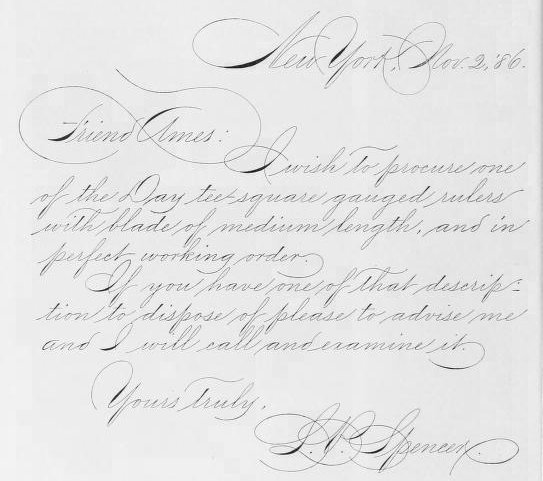 New York, Nov. 2, '86.
Friend Ames:
I wish to procure one
of the Day tee-square gauged rulers
with blade of medium length, and in
perfect working order.
If you have one of that descrip=
tion to dispose of please to advise me
and I will call and examine it.
Yours Truly,
L. P. Spencer.